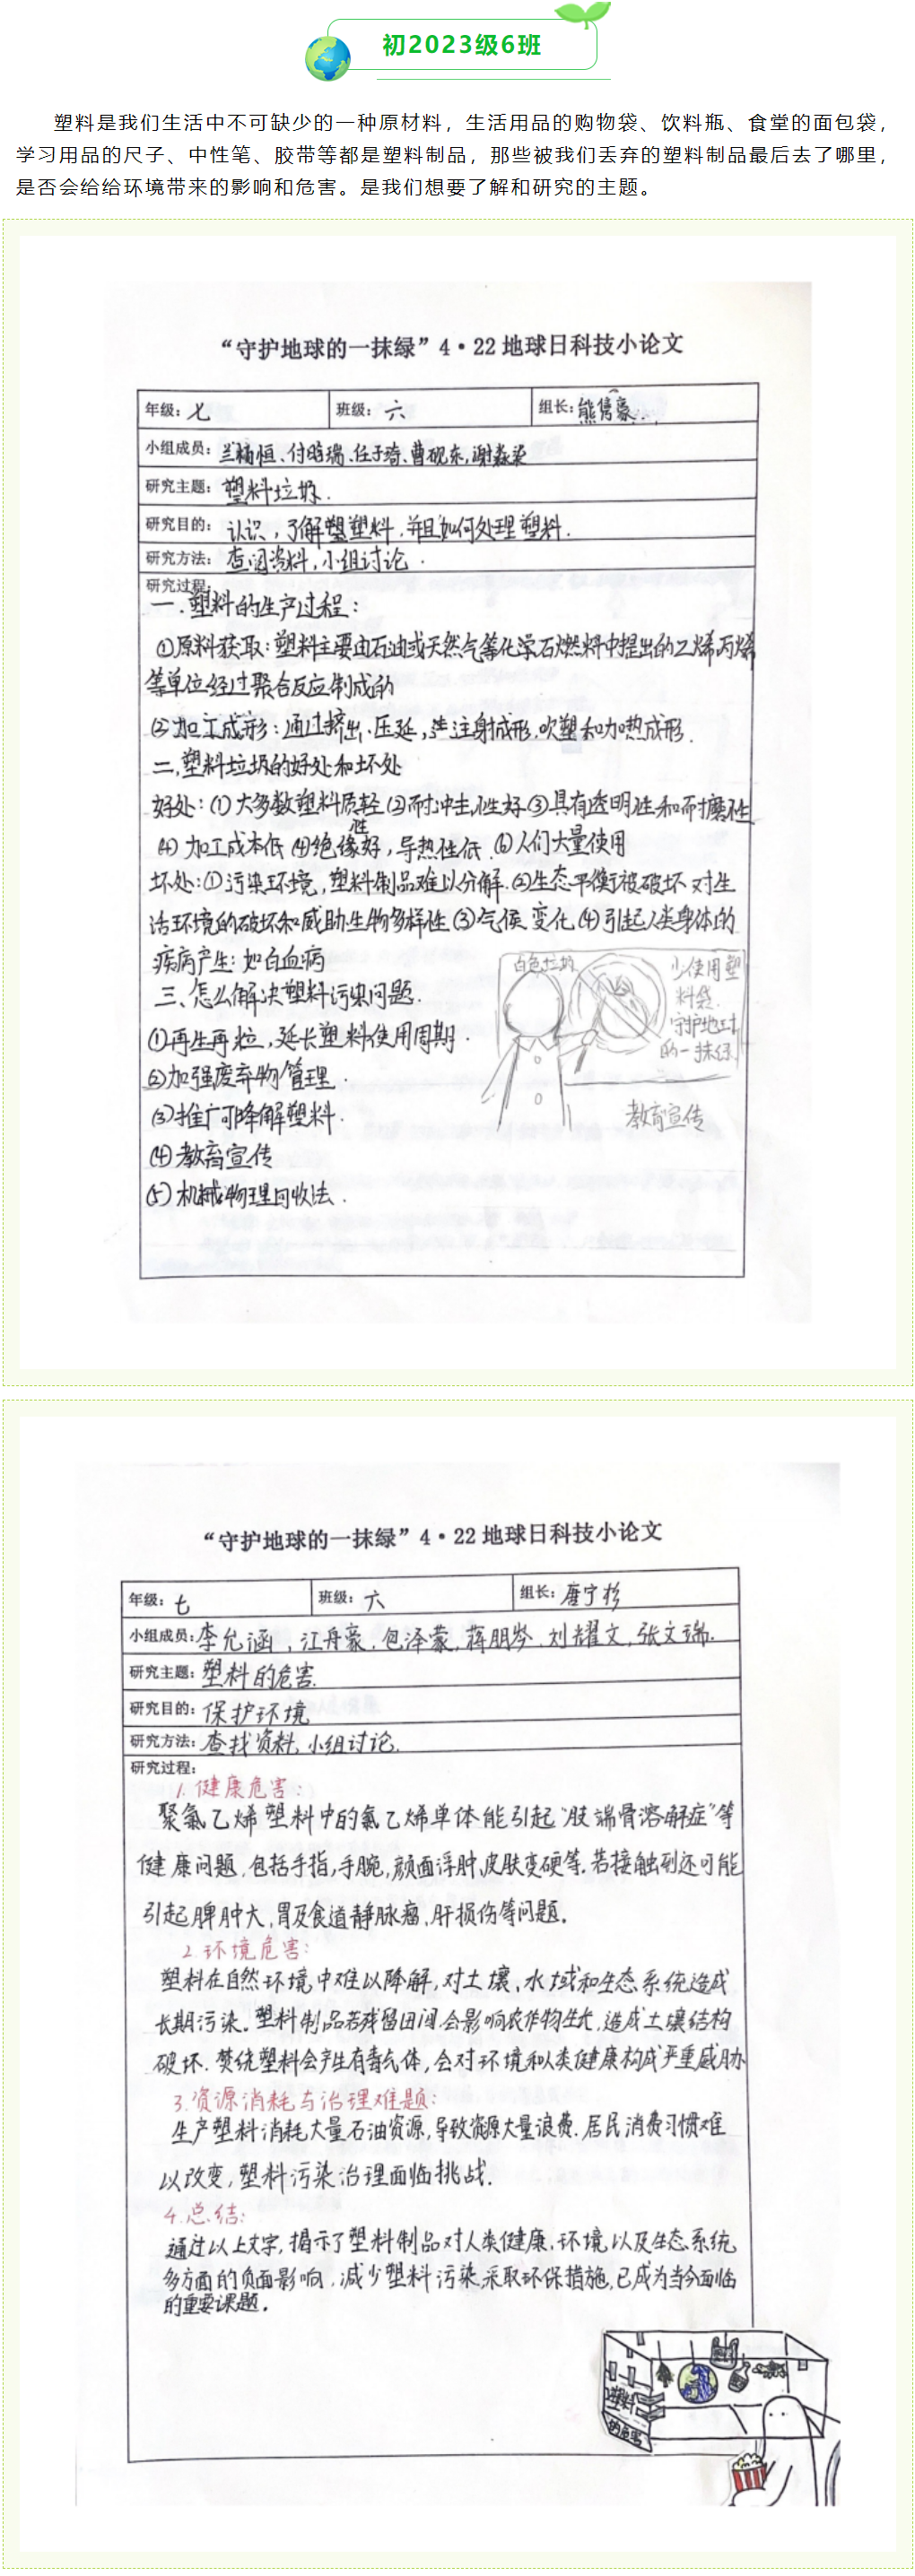 初2023级6班
塑料是我们生活中不可缺少的一种原材料，生活用品的购物袋、饮料瓶、食堂的面包袋，
学习用品的尺子、中性笔、胶带等都是塑料制品，那些被我们丢弃的塑料制品最后去了哪里，
是否会给给环境带来的影响和危害。是我们想要了解和研究的主题。
“守护地球的一抹绿”4·22地球日科技小论文
年级：七 班级：六 组长：熊隽豪
小组成员：
研究主题：塑料垃圾.
研究目的：认识，了解塑料.并且如何处理塑料.
研究方法：查阅资料,小组讨论.
研究过程:
一.塑料的生产过程：
①原料获取：塑料主要由石油或天然气等化学石燃料中提出的乙烯丙烯
等单位经过聚合反应制成的
②加工成形：通过挤出、压延，注射成形.吹塑和加热成形.
二,塑料垃圾的好处和坏处
好处：①大多数塑料质轻②耐冲击性好③具有透明性和耐磨性
④加工成本低④绝缘性好，导热性低.⑥人们大量使用
坏处：①污染环境，塑料制品难以分解.②生态平衡被破坏对生
活环境的破坏和威胁生物多样性③气候变化④引起人类身体的
疾病产生：如白血病
三、怎么解决塑料污染问题.
①再生再粒，延长塑料使用周期.
②加强废弃物管理.
③推广可降解塑料.
④教育宣传
⑤机械物理回收法.
白色垃圾
少使用塑
料袋.
守护地球
的一抹绿
教育宣传
“守护地球的一抹绿”4·22地球日科技小论文
年级：七 班级：六 组长：唐宁杉
小组成员：李允涵、江舟豪.包泽蒙,蒋朋岑.刘耀文,张文瑞.
研究主题：塑料的危害.
研究目的：保护环境
研究方法：查找资料,小组讨论.
研究过程:
1.健康危害：
聚氯乙烯塑料中的氯乙烯单体能引起“肢端骨溶解症”等
健康问题,包括手指,手腕,颜面浮肿,皮肤变硬等.若接触到还可能
引起脾肿大,胃及食道静脉瘤,肝损伤等问题.
2.环境危害：
塑料在自然环境中难以降解,对土壤,水域和生态系统造成
长期污染.塑料制品若残留田间,会影响农作物生长,造成土壤结构
破坏.焚烧塑料会产生有毒气体,会对环境和人类健康构成严重威胁
3.资源消耗与治理难题：
生产塑料消耗大量石油资源,导致资源大量浪费.居民消费习惯难
以改变,塑料污染治理面临挑战.
4.总结：
通过以上文字,揭示了塑料制品对人类健康,环境以及生态系统
多方面的负面影响.减少塑料污染,采取环保措施,已成为当今面临
的重要课题.
塑料
的危害